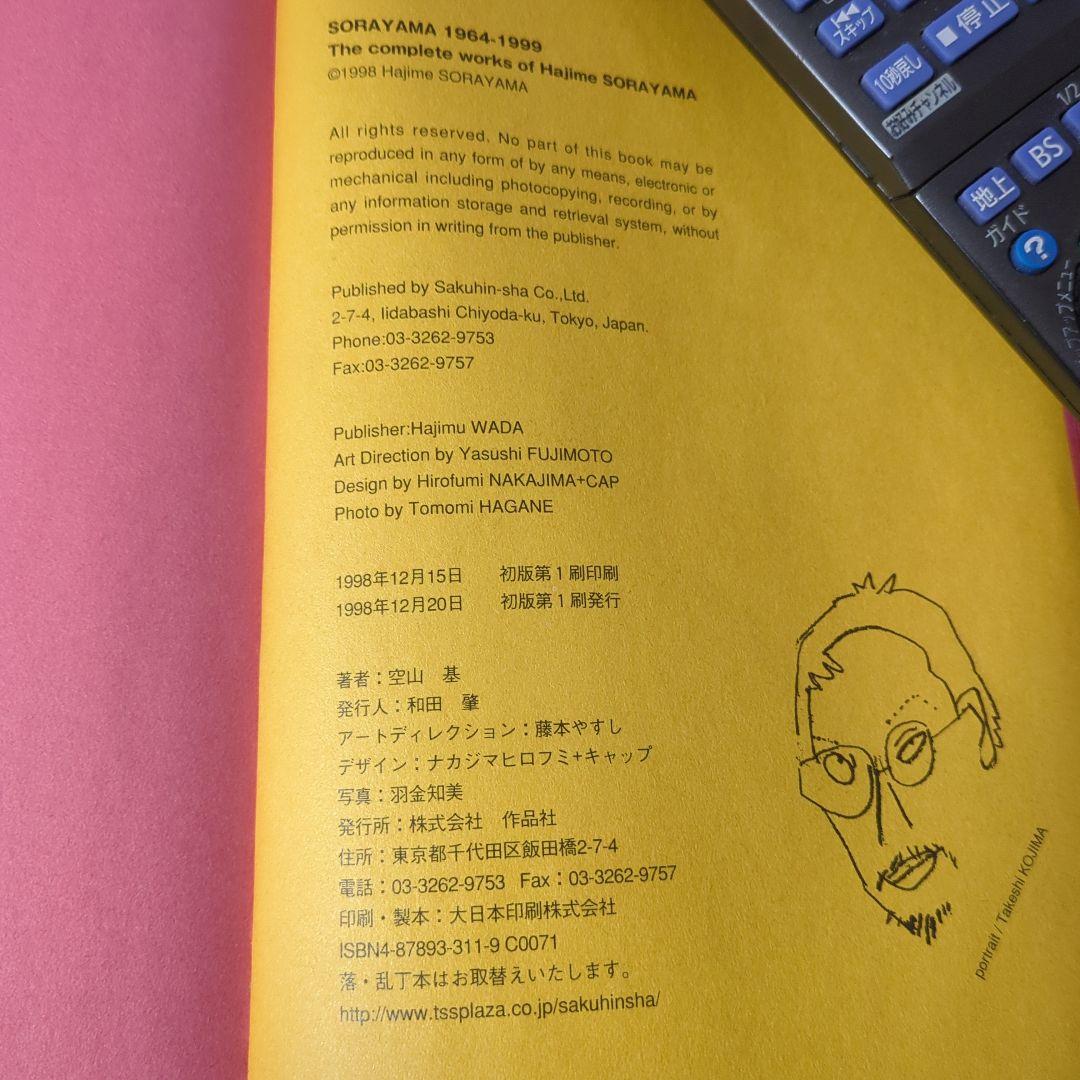 SORAYAMA 1964-1999
The complete works of Hajime SORAYAMA
©1998 Hajime SORAYAMA
All rights reserved. No part of this book may be
reproduced in any form of by any means, electronic or
mechanical including photocopying, recording, or by
any information storage and retrieval system, without
permission in writing from the publisher.
Published by Sakuhin-sha Co.,Ltd.
2-7-4, Iidabashi Chiyoda-ku, Tokyo, Japan.
Phone:03-3262-9753
Fax:03-3262-9757
Publisher:Hajimu WADA
Art Direction by Yasushi FUJIMOTO
Design by Hirofumi NAKAJIMA+CAP
Photo by Tomomi HAGANE
1998年12月15日 初版第1刷印刷
1998年12月20日 初版第1刷発行
著者：空山 基
発行人：和田 肇
アートディレクション：藤本やすし
デザイン：ナカジマヒロフミ+キャップ
写真：羽金知美
発行所：株式会社 作品社
住所：東京都千代田区飯田橋2-7-4
電話：03-3262-9753 Fax：03-3262-9757
印刷・製本：大日本印刷株式会社
ISBN4-87893-311-9 C0071
落・乱丁本はお取替えいたします。
http://www.tssplaza.co.jp/sakuhinsha/
portrait / Takeshi KOJIMA
スキップ
停止
10秒戻し
チャンネル
1/2
地上
BS
ガイド
?